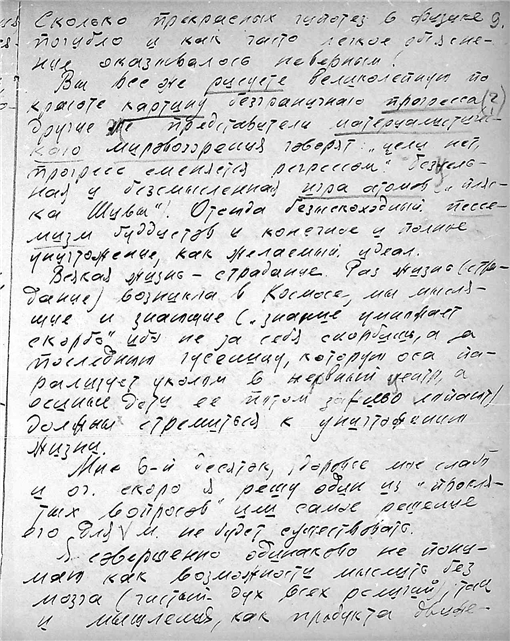 Сколько прекрасных гипотез в физике 9.
погибло и как часто легкое объясне-
ние оказывалось неверным!
Вы все же рисуете великолепную по
красоте картину безграничного прогресса (?)
другие же представители материалистиче-
ского мировоззрения говорят: „цели нет,
прогресс сменяется регрессом" безцель-
ная и безсмысленная игра атомов „пляс-
ка Шивы"! Отсюда безисходный песси-
мизм буддистов и конечное и полное
уничтожение, как желаемый идеал.
Всякая жизнь – страдание. Раз жизнь (стра-
дание) возникла в Космосе, мы мысля-
щие и знающие („знание умножает
скорбь" ибо не за себя скорбишь, а за
последнюю гусеницу, которую оса па-
рализует уколом в нервный центр, а
осиные дети ее потом заживо лопают)
должны стремиться к уничтожению
жизни.
Мне 6-й десяток, здоровье мое слабо
и оч. скоро я решу один из „прокля-
тых вопросов" или самое решение
его для м. не будет существовать.
Я совершенно одинаково не пони-
маю как возможности мыслить без
мозга (чистый дух всех религий), так
и мышления, как продукта движе-